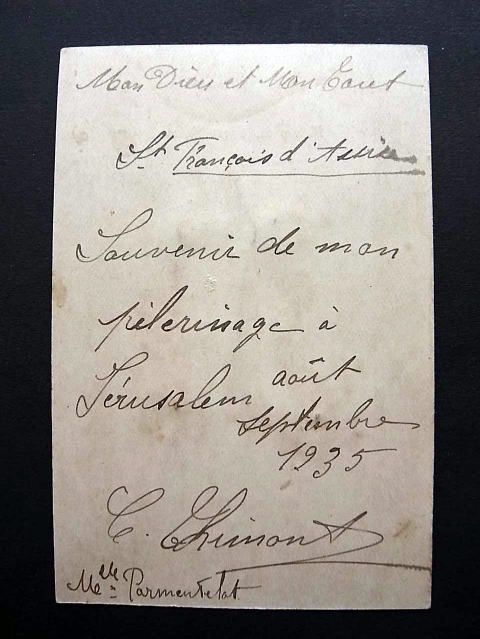 Mon Dieu et Mon Tout
St François d'Assise
Souvenir de mon
pèlerinage à
Jérusalem août
septembre
1935
C. Thimont
Melle Parmentelat